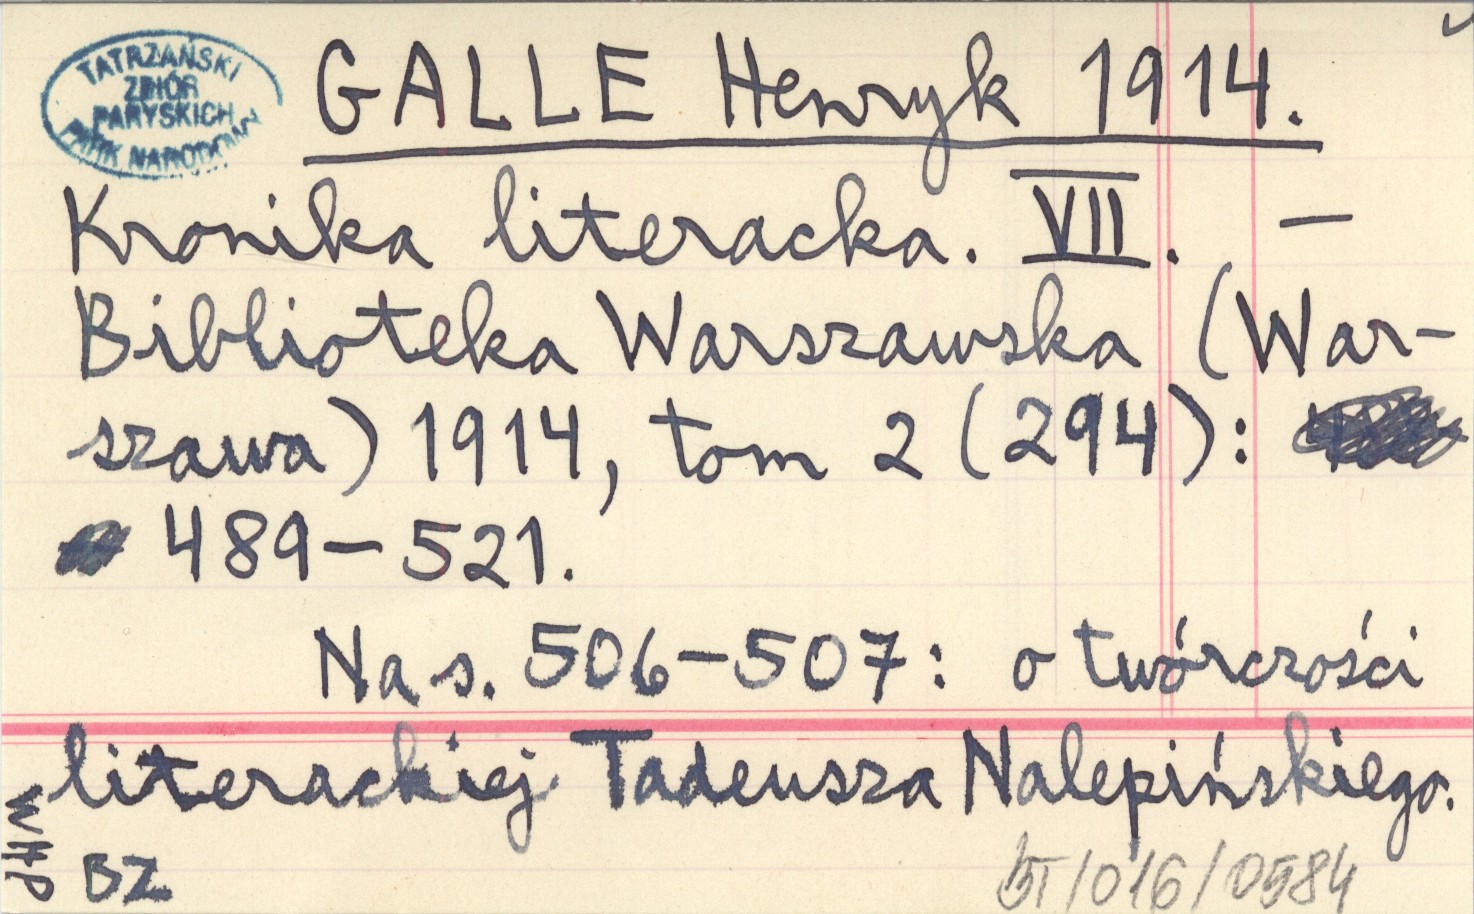 TATRZAŃSKI
ZBIÓR
PARYSKICH
PARK NARODOWY
GALLE Henryk 1914.
Kronika literacka. VII. —
Biblioteka Warszawska (War-
szawa) 1914, tom 2 (294):
489-521.
Na s. 506-507: o twórczości
literackiej Tadeusza Nalepińskiego.
WHP
BZ
BT/016/0584